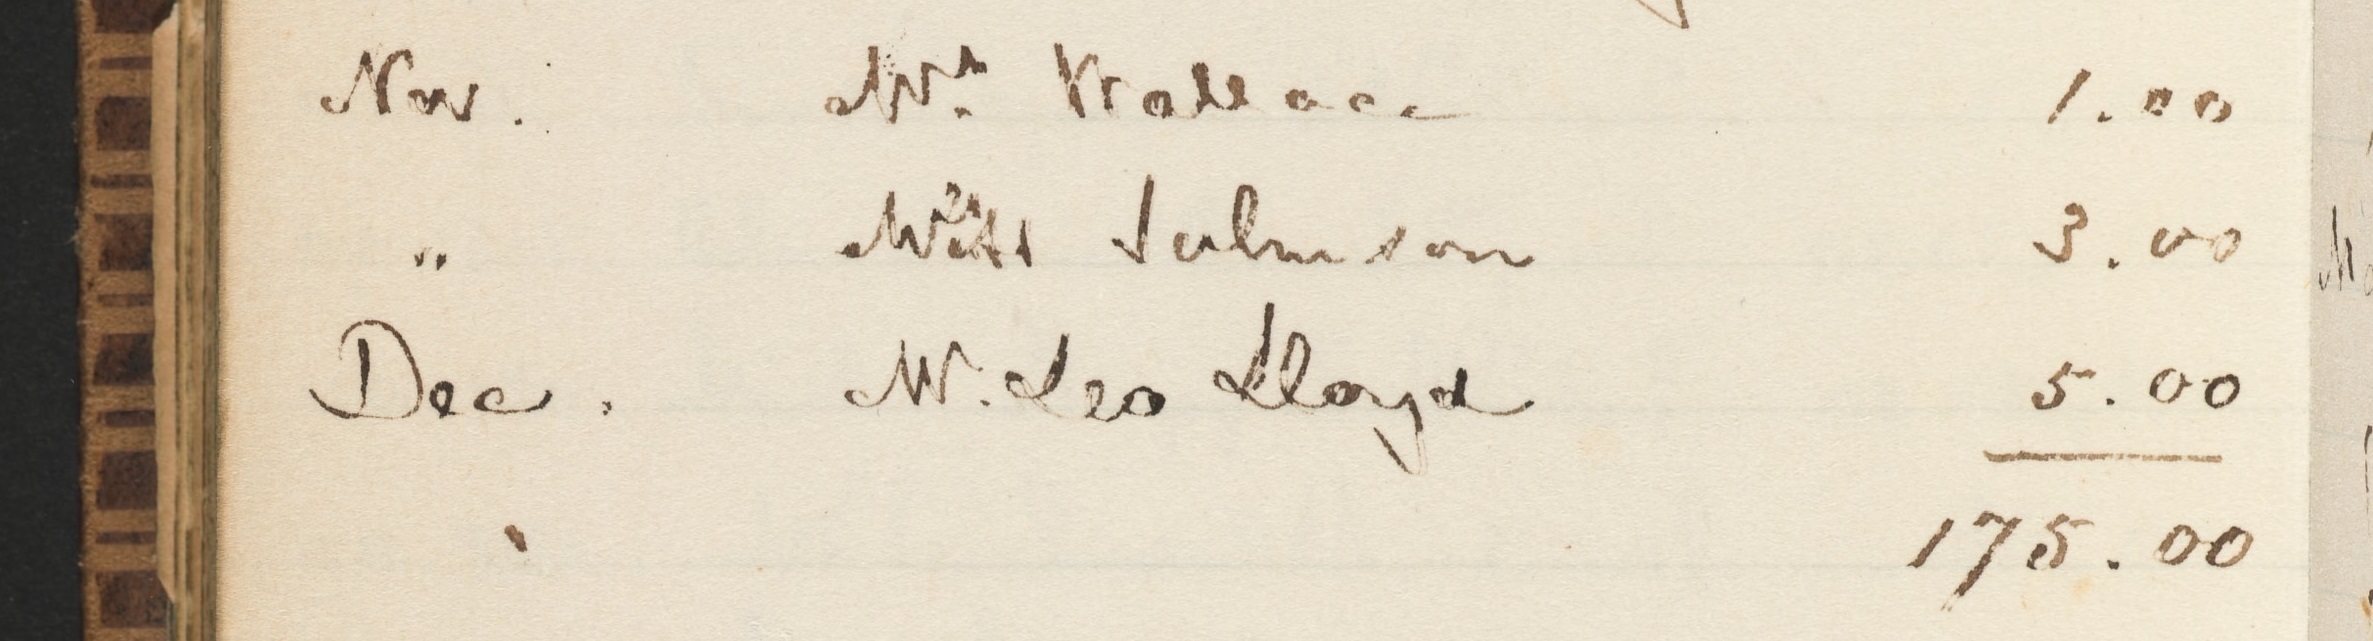 Nov. Mr. Wallace 1.00
" Johnson 3.00
Dec. M. Leo Lloyd 5.00
175.00